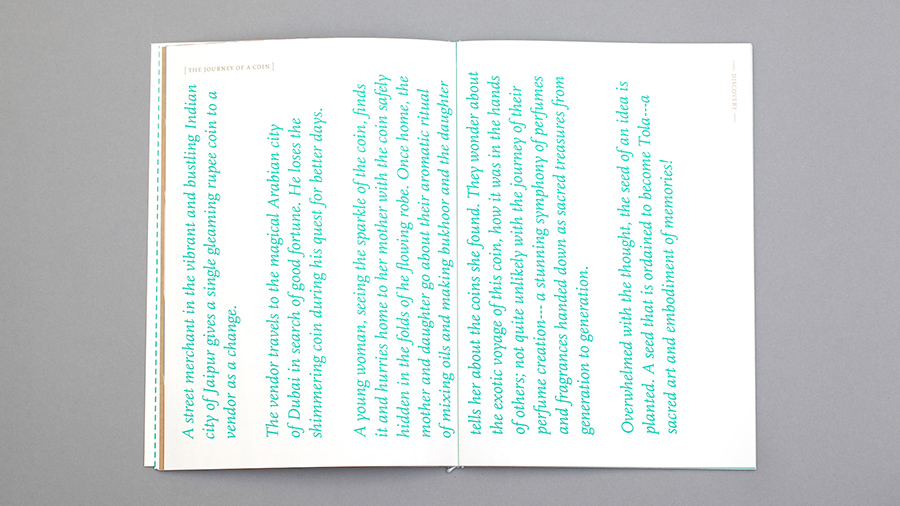 [ THE JOURNEY OF A COIN ]
A street merchant in the vibrant and bustling Indian
city of Jaipur gives a single gleaming rupee coin to a
vendor as a change.
The vendor travels to the magical Arabian city
of Dubai in search of good fortune. He loses the
shimmering coin during his quest for better days.
A young woman, seeing the sparkle of the coin, finds
it and hurries home to her mother with the coin safely
hidden in the folds of he flowing robe. Once home, the
mother and daughter go about their aromatic ritual
of mixing oils and making bukhoor and the daughter
tells her about the coins she found. They wonder about
the exotic voyage of this coin, how it was in the hands
of others; not quite unlikely with the journey of their
perfume creation--- a stunning symphony of perfumes
and fragrances handed down as sacred treasures from
generation to generation.
Overwhelmed with the thought, the seed of an idea is
planted. A seed that is ordained to become Tola--a
sacred art and embodiment of memories!